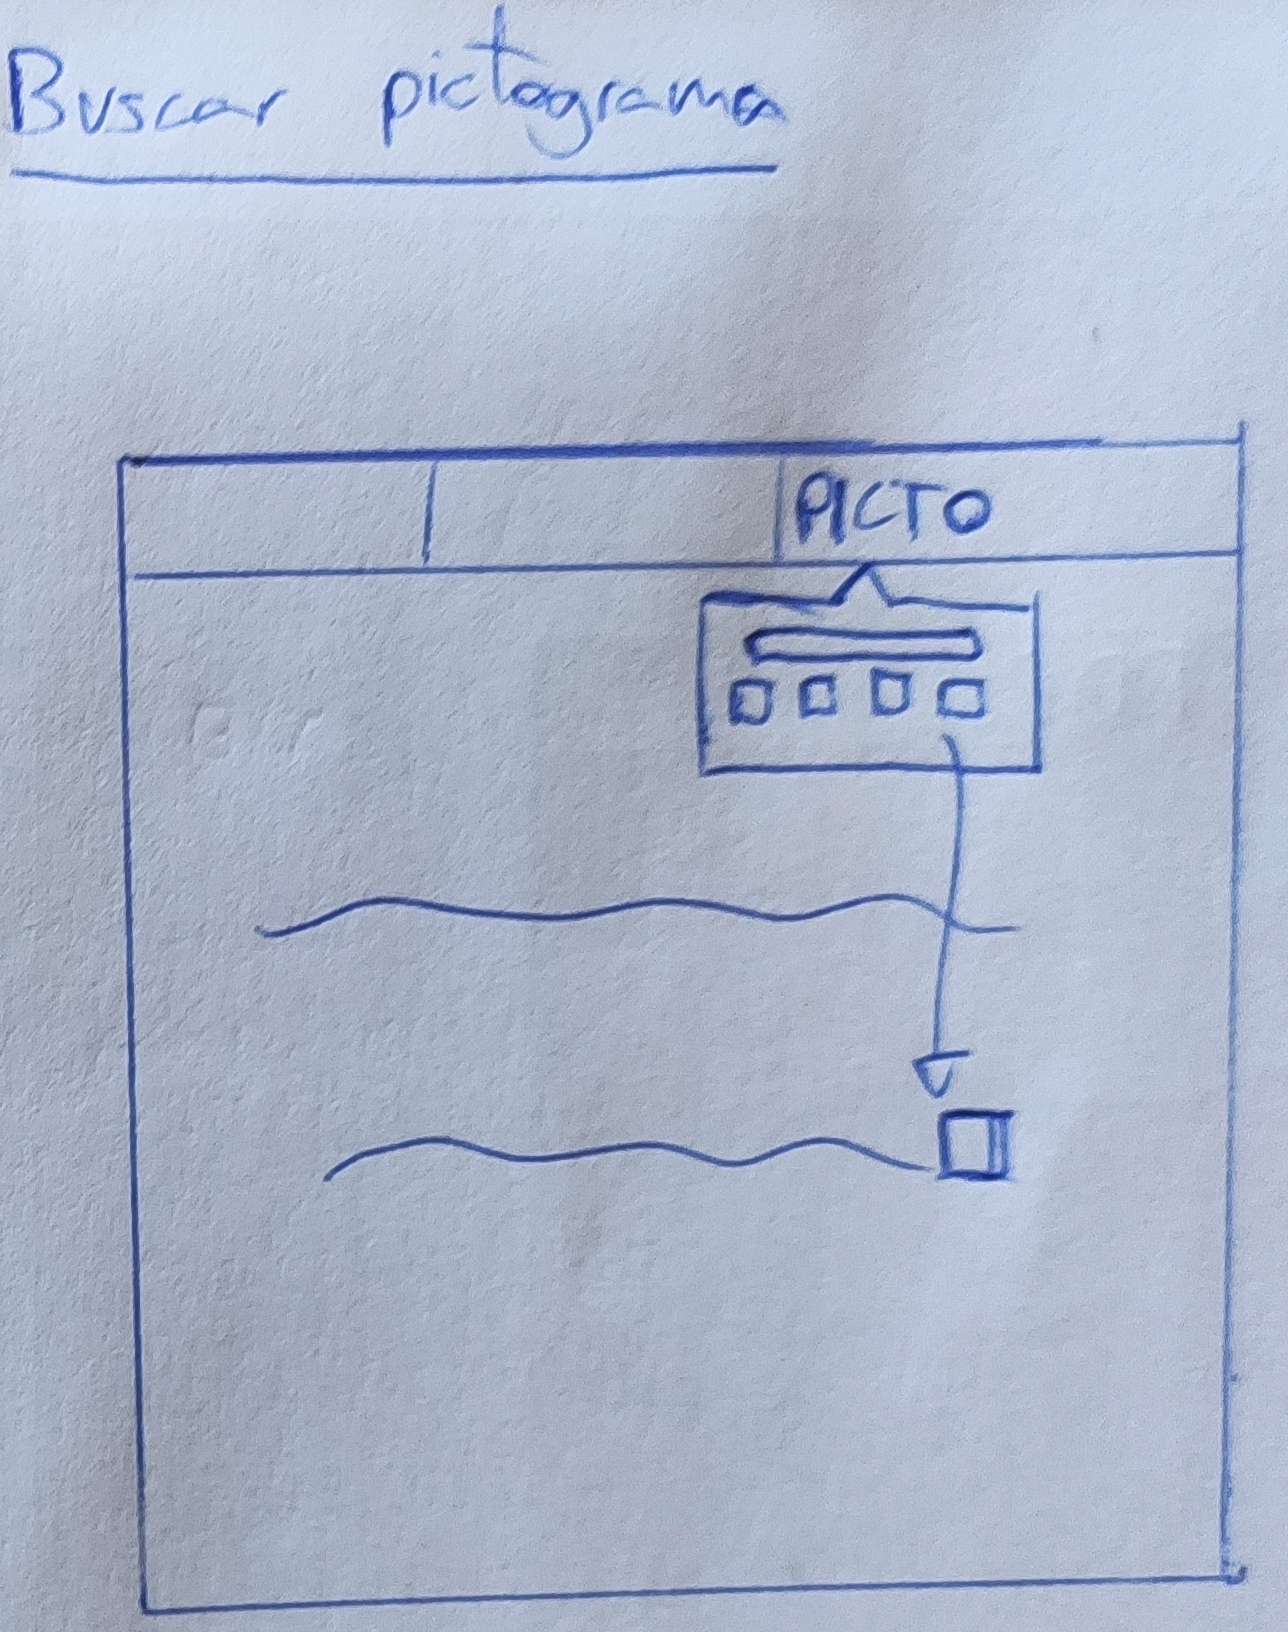 Buscar pictograma
PICTO